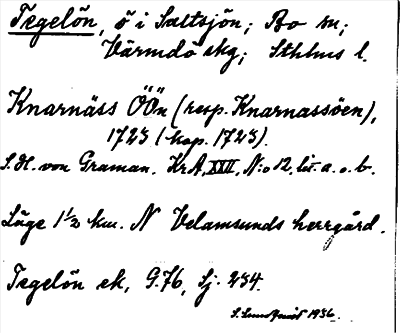 Tegelön, ö i Saltsjön; Bo sn;
Värmdö skg; Sthlms l.
Knarnäss ÖÖn (resp. Knarnassöen),
1723 (kop. 1723).
S. H. von Graman. KrA, XXII, N:o 12, lit. a. o. b.
Läge 1 1/2 km. N Velamsunds herrgård.
Tegelön ek, G. 76, Sj. 234.
1936.